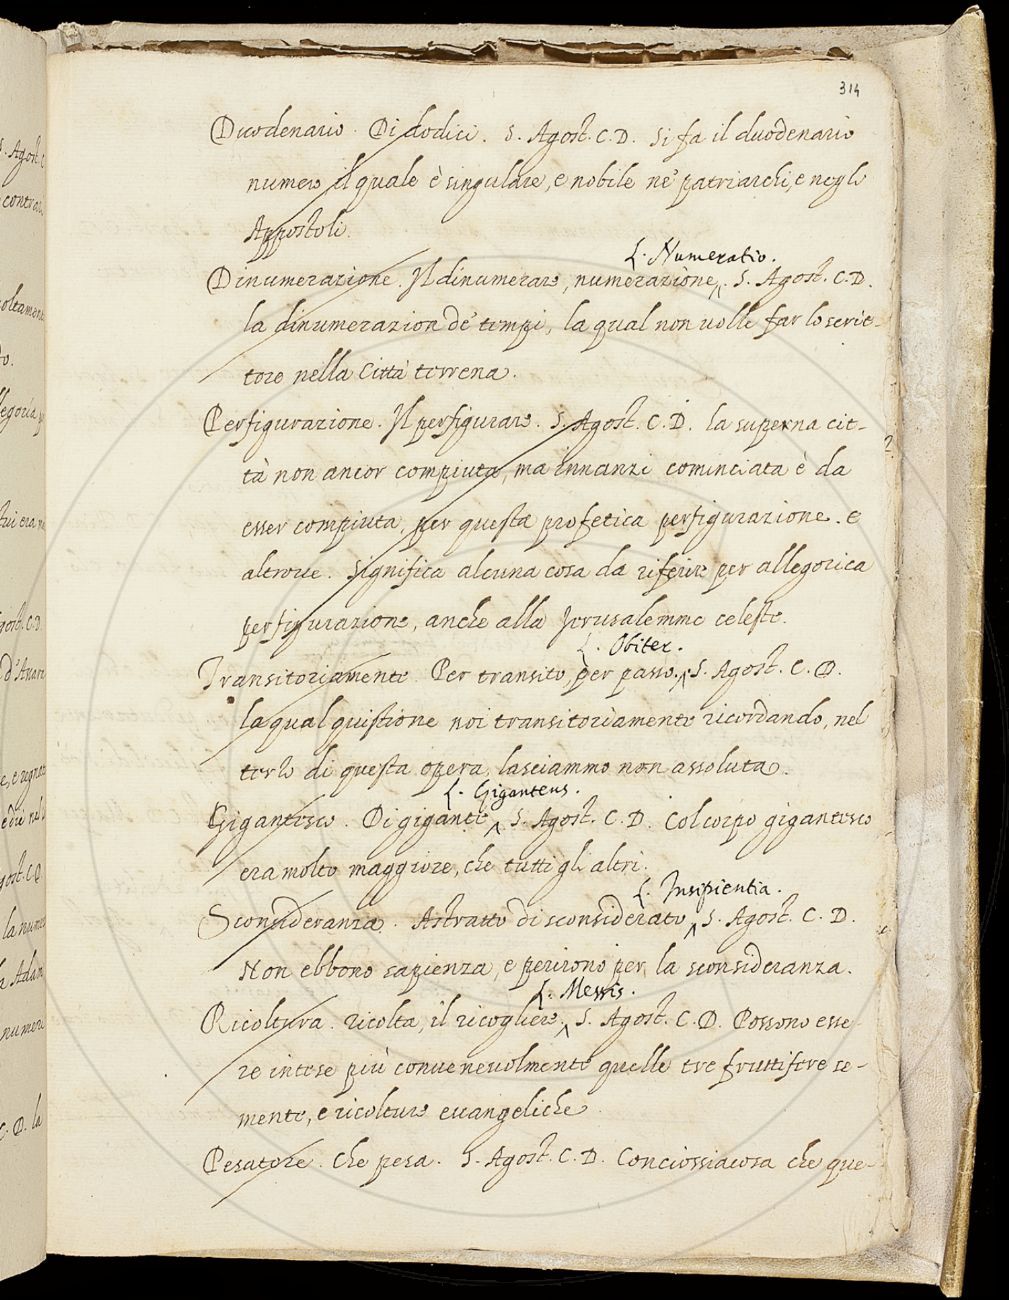 314
Duodenario. Di dodici. S. Agost. C. D. Si fa il duodenario
numero il quale è singulare, e nobile ne' patriarchi, e negli
Appostoli.
L. Numeratio.
Dinumerazione. Il dinumerare, numerazione ^. S. Agost. C. D.
la dinumerazion de' tempi, la qual non volle far lo scrit-
tore nella Città terrena.
Perfigurazione. Il perfigurare. S. Agost. C. D. la superna cit-
tà non ancor compiuta, ma innanzi cominciata è da
esser compiuta, per questa profetica perfigurazione. e
altrove. Significa alcuna cosa da riferire per allegorica
perfigurazione, anche alla Jerusalemme celeste.
L. Obiter.
Transitoriamente. Per transito, per passo. ^ S. Agost. C. D.
la qual quistione noi transitoriamente ricordando, nel
terzo di questa opera, lasciammo non assoluta.
L. Giganteus.
Gigantesco. Di giganti ^. S. Agost. C. D. Col corpo gigantesco
era molto maggiore, che tutti gli altri.
L. Insipientia.
Sconsideranza. Astratto di sconsiderato ^ S. Agost. C. D.
Non ebbono sapienza, e perirono per la sconsideranza.
L. Messis.
Ricoltura. ricolta, il ricogliere. ^ S. Agost. C. D. Possono esse-
re intese più convenevolmente quelle tre fruttifere se-
mente, e ricolture evangeliche.
Pesatore. Che pesa. S. Agost. C. D. Conciossiacosa che que-